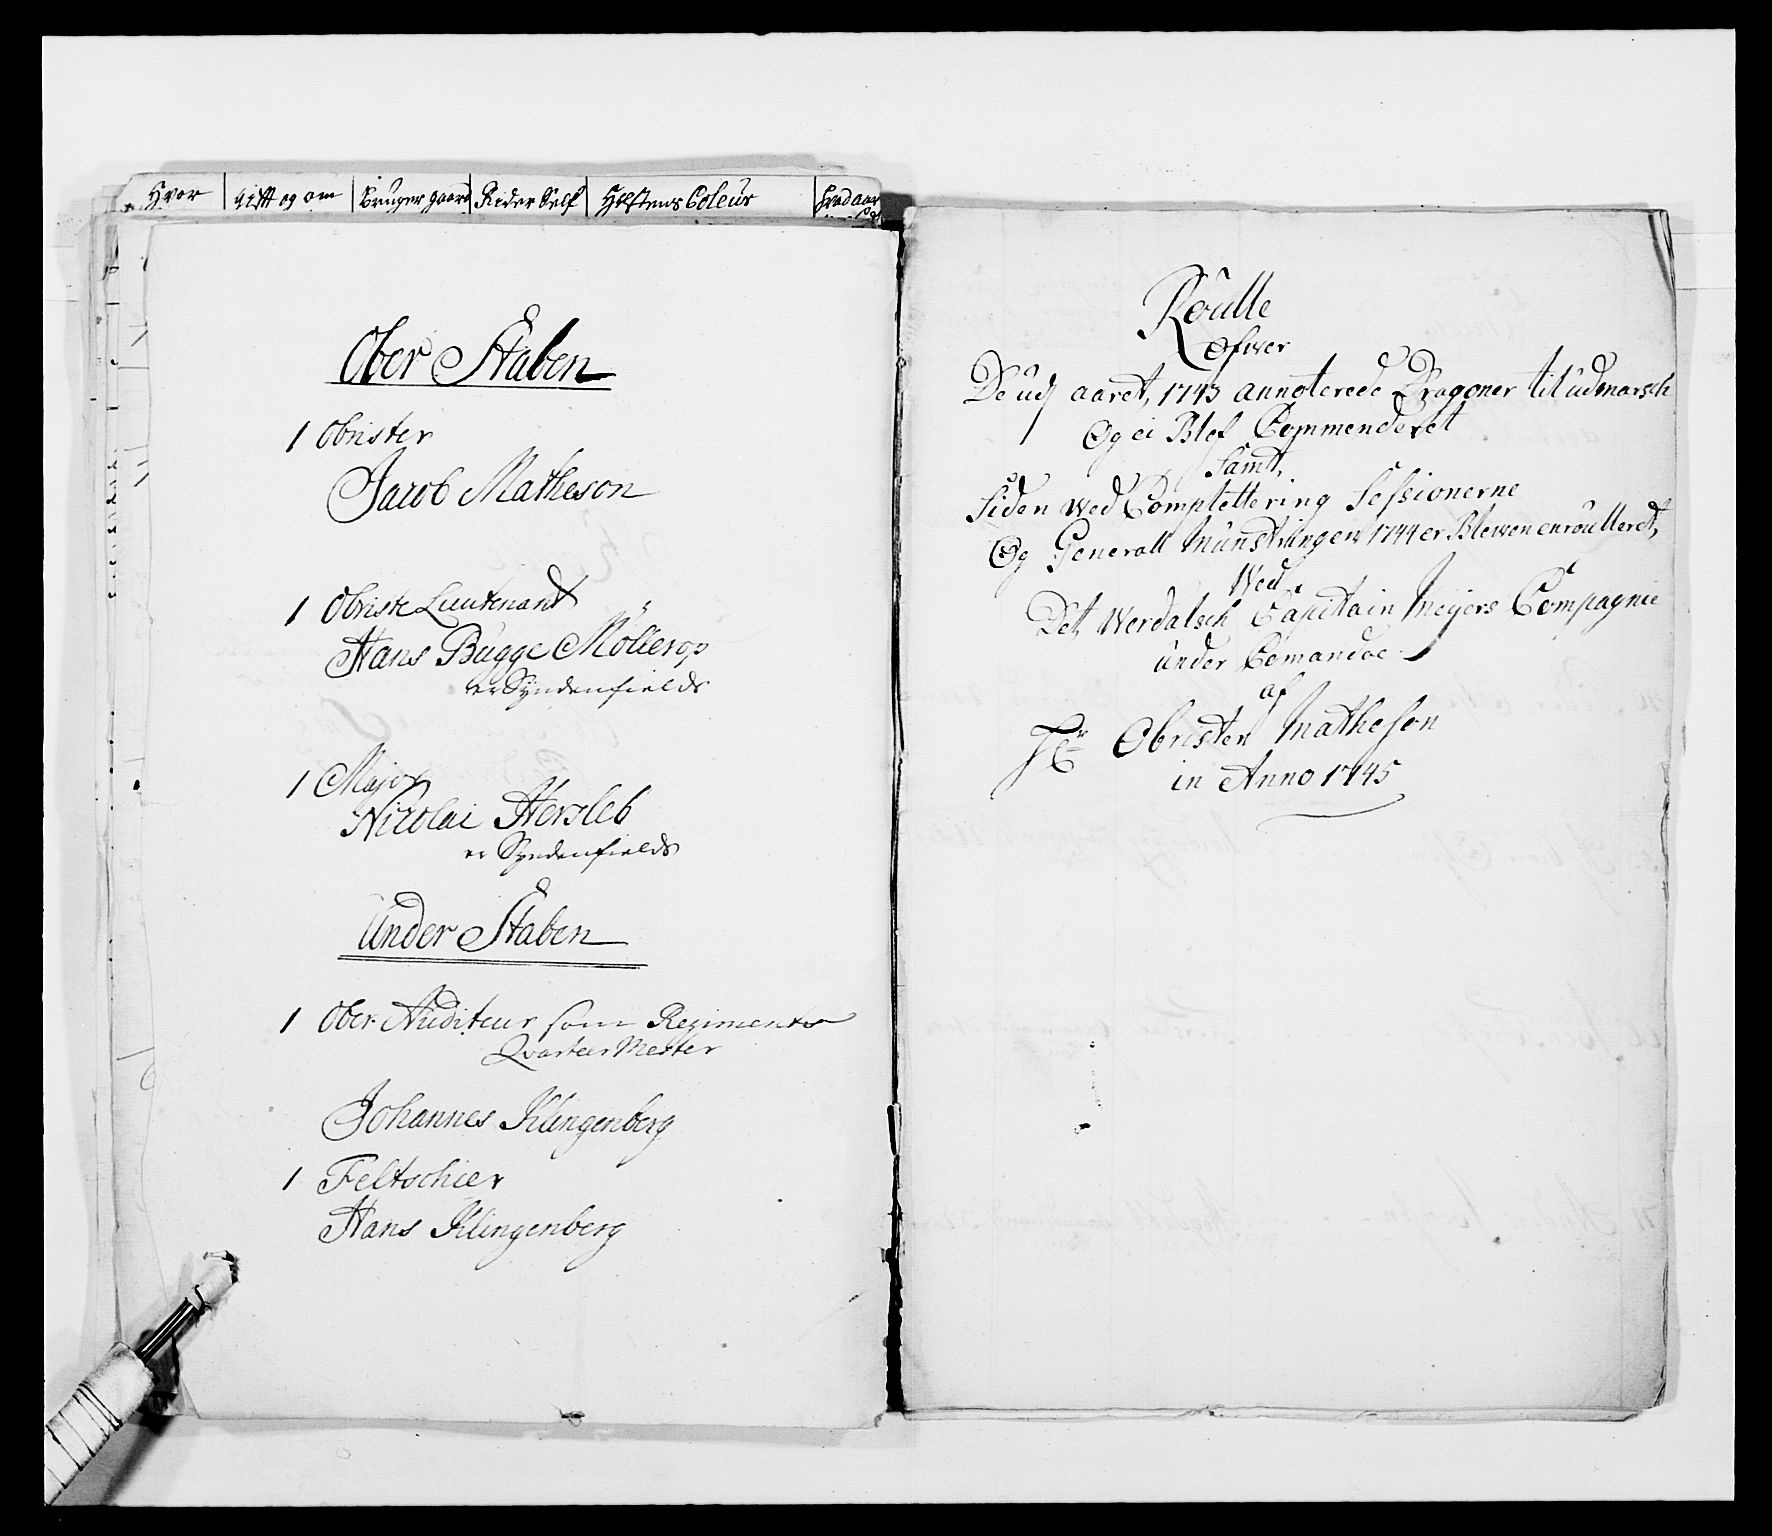 Hvor | gift og om | Bruger gaard | Rider Self | Hæstens Coleur | hvad aar
Ober Staben
1 Obrister
Jacob Matheson
1 Obriste Lieutenant
Hans Bugge Möllerop
er Syndenfields
1 Major
Nicolai Hersleb
er Syndenfields
Under Staben
1 Ober Auditeur som Regiments
Qvarteer Mester
Johannes Klingenberg
1 Feltschier
Hans Klingenberg
Roulle
Ofwer
De udj aaret, 1743 annoterede Dragoner til udmarsch
Og ei Blef Commenderet
Samt,
Siden wed Complettering Sessionerne
Og Generall Munstringen 1744 er Blewen enroulleret,
Wed
Det Werdalsch Capitain Meijers Compagnie
under Comandoe
af
Hr Obristen Matheson
in Anno 1745